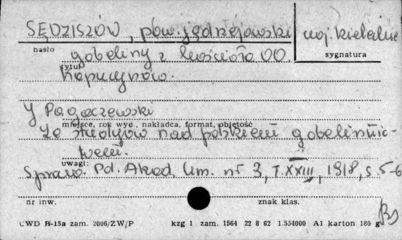 SĘDZISZÓW, pow. jędrzejowski woj. kieleckie
hasło
sygnatura
gobeliny z kościoła OO.
tytuł
Kapucynów.
J Pagaczewski
miejsce, rok wyd., nakładca, format, objętość
Ze studyów nad polskiem gobelinnic-
twem.
uwagi:
Spraw. Pd. Akad. Um. nr 3, T. XXIII, 1918, s. 5-6
nr inw.
znak klas.
CWD B-15a zam. 2006/ZW/P kzg 1 zam. 1564 22 8 62 1.554000 A1 karton 180 g